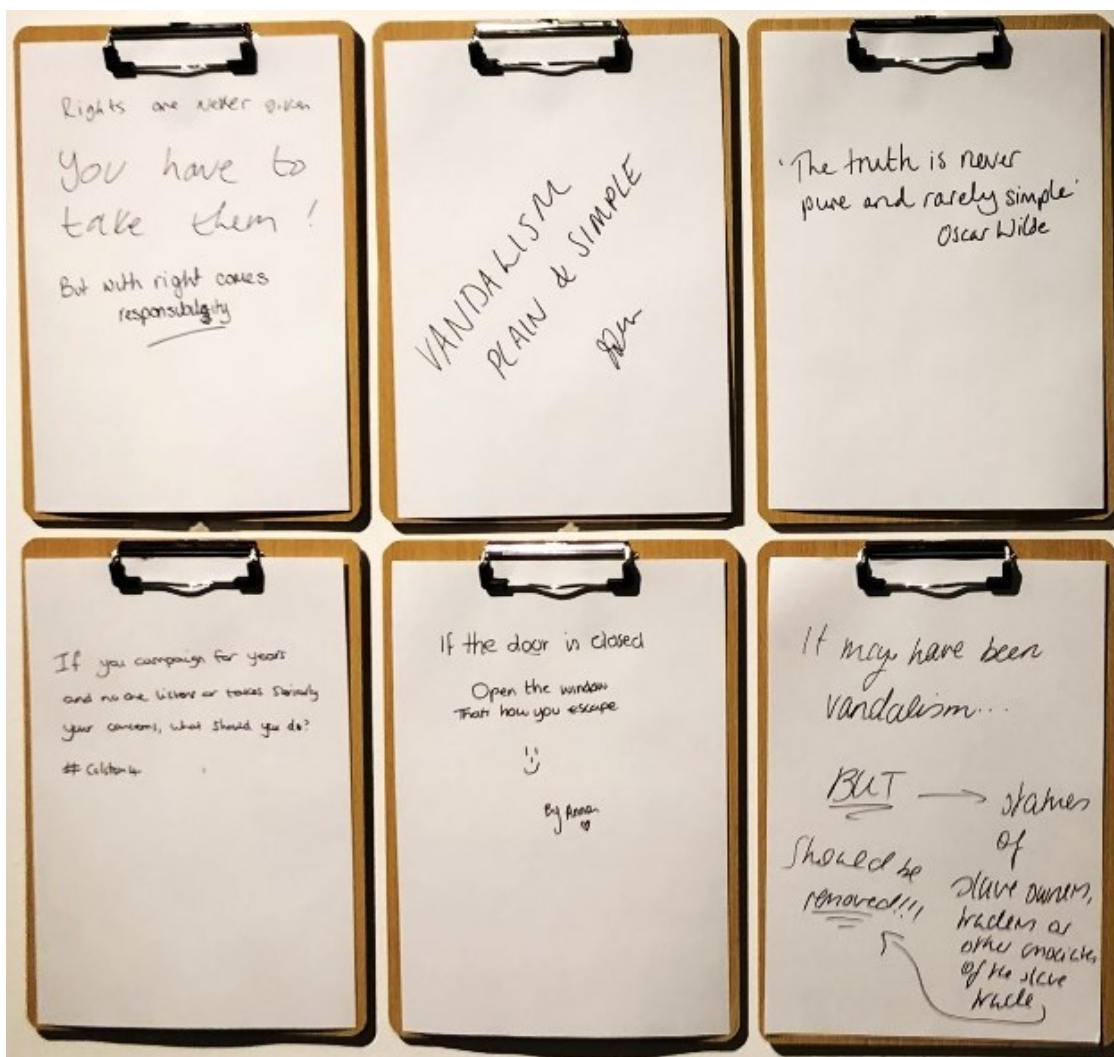 Rights are never given
You have to
take them!
But with right comes
responsibility
VANDALISM
PLAIN & SIMPLE
'The truth is never
pure and rarely simple'
Oscar Wilde
If you campaign for years
and no one listens or takes seriously
your concerns, what should you do?
# Colston 4
If the door is closed
Open the window
Thats how you escape
By Anna
It may have been
vandalism...
BUT → statues
of
slave owners,
traders or
other
of the slave
trade
should be
removed!!!